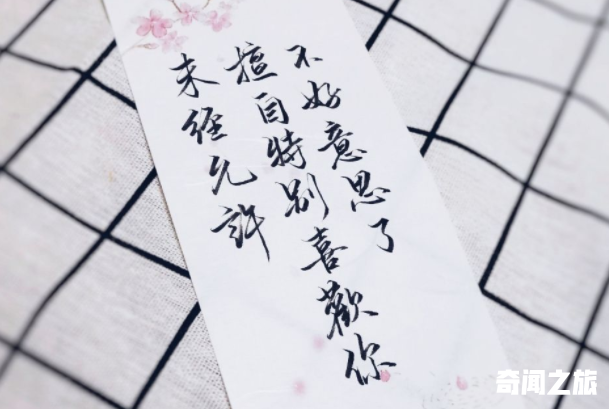 未经允許
擅自特别喜歡你
不好意思了
奇闻之旅